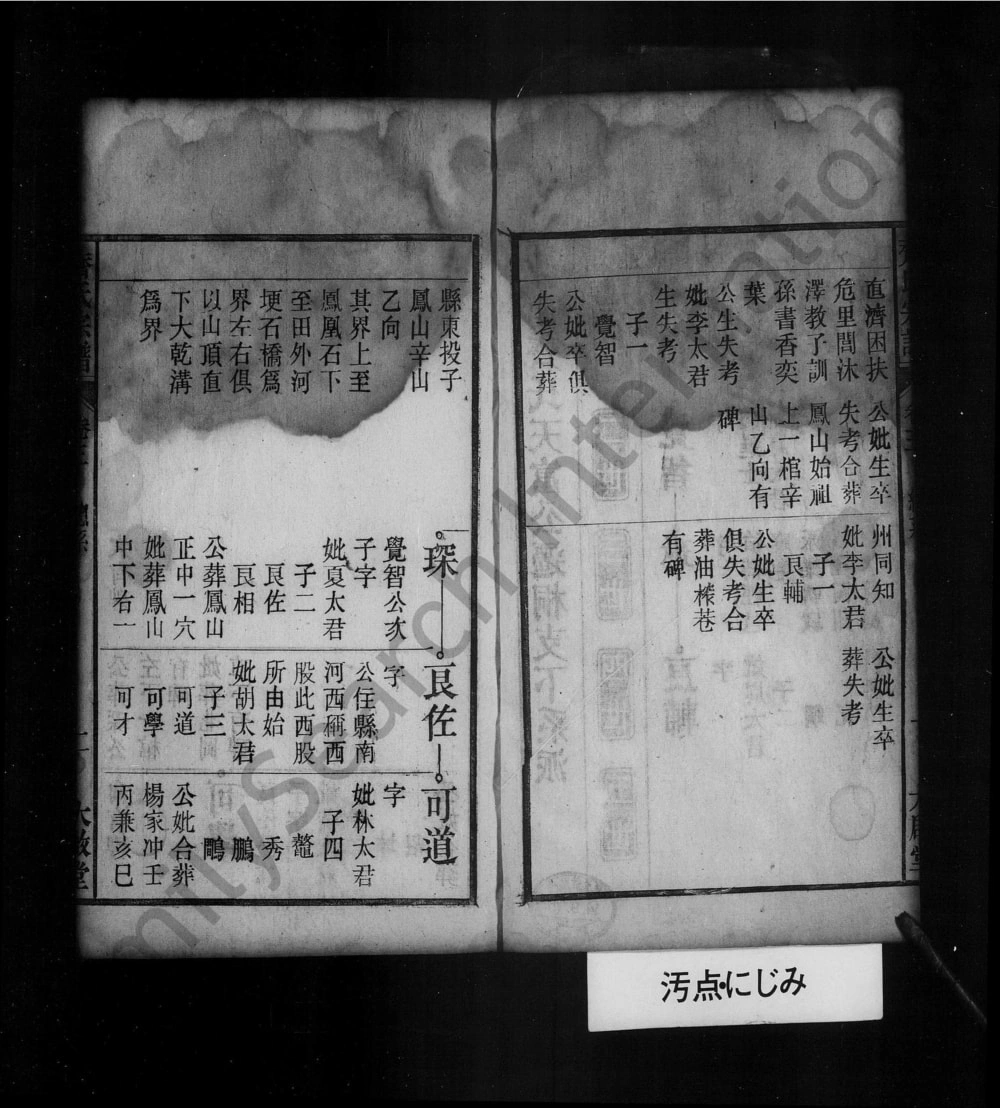 直濟困扶
危里閭沐
澤教子訓
孫書香奕
葉
公生失考
妣李太君
生失考
子一
覺智
公妣卒俱
失考合葬
公妣生卒
失考合葬
鳳山始祖
上一棺辛
山乙向有
碑
州同知
妣李太君
子一
良輔
公妣生卒
俱失考合
葬油榨巷
有碑
公妣生卒
葬失考
縣東投子
鳳山辛山
乙向
其界上至
鳳凰石下
至田外河
埂石橋爲
界左右俱
以山頂直
下大乾溝
爲界
琛
覺智公次
子字
妣夏太君
子二
良佐
良相
公葬鳳山
正中一穴
妣葬鳳山
中下右一
良佐
字
公住縣南
河西稱西
股此西股
所由始
妣胡太君
子三
可道
可學
可才
可道
字
妣林太君
子四
鰲
秀
鵬
鵰
公妣合葬
楊家冲壬
丙兼亥巳
汚点・にじみ